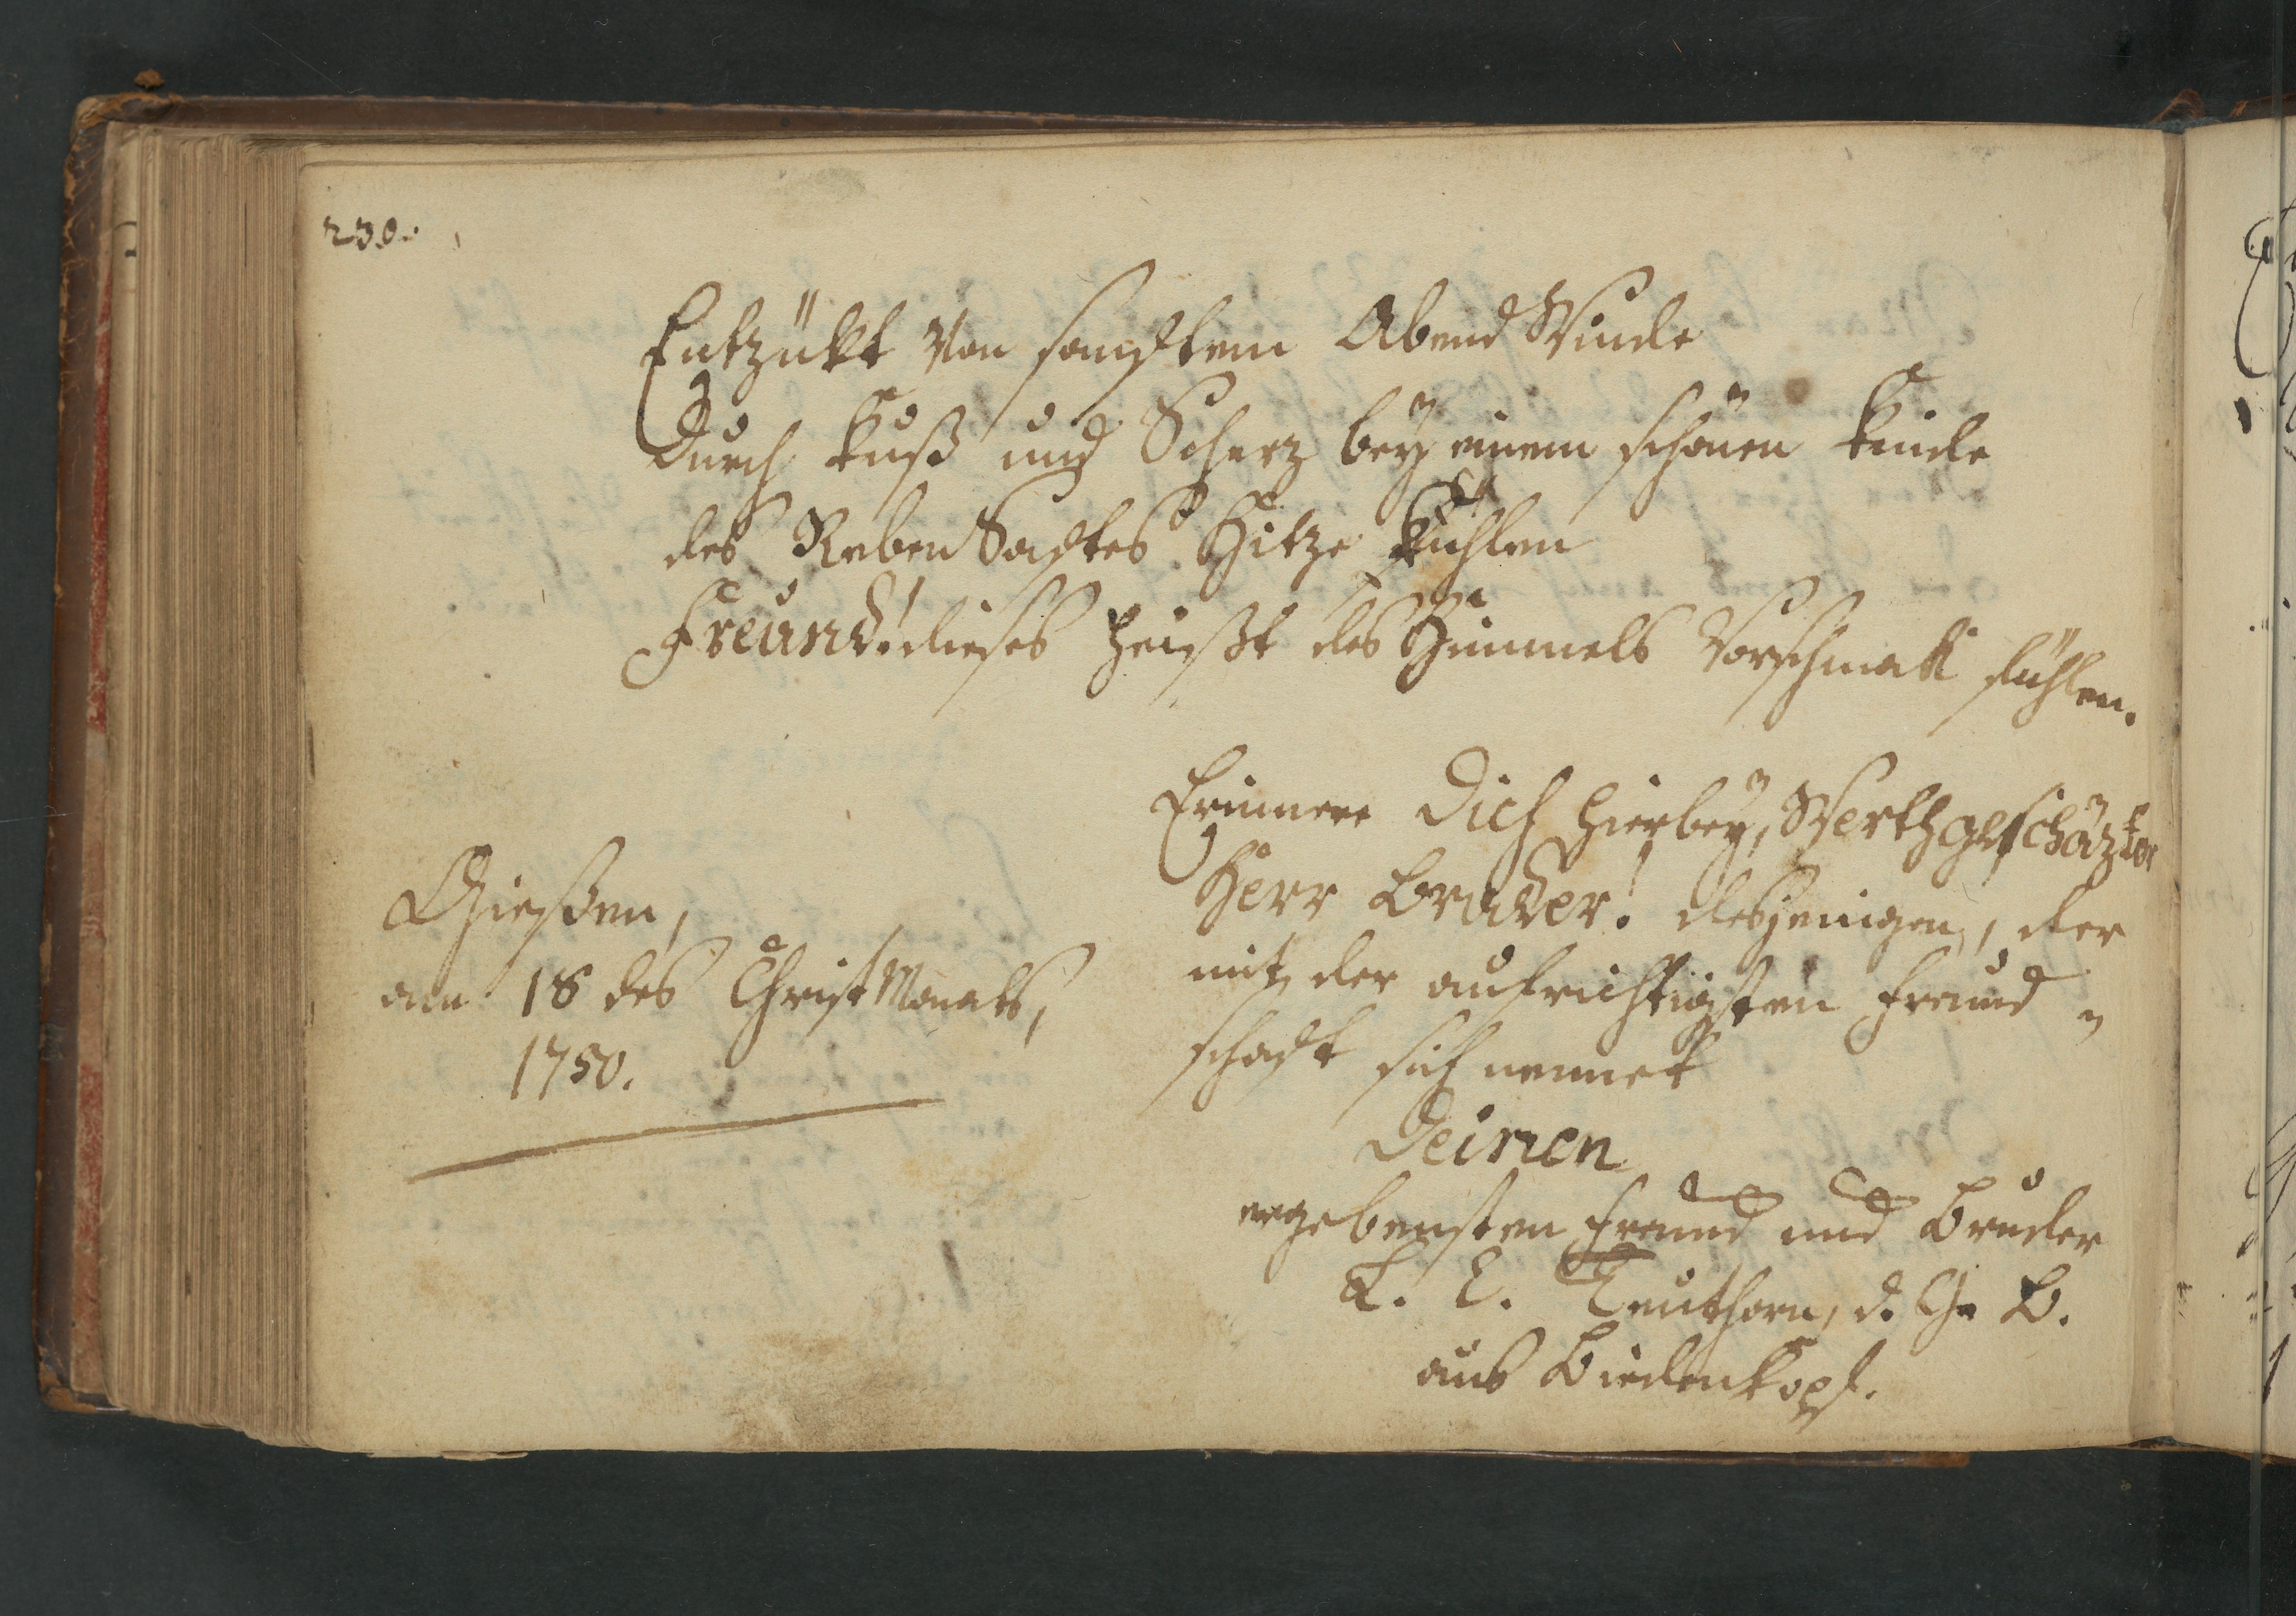 230.
Entzükt von sanftem Abend Winde
Durch Kuß und Scherz beÿ einem schönen Kinde
des Reben Saftes Hitze kühlen
Freund! dieses heißt des Himmels Vorschmak fühlen.
Gießen,
am 18 des Christ Monats,
1750.
Erinnere Dich hierbeÿ, Werthgeschäzter
Herr Bruder! desjenigen, der
mit der aufrichtigsten Freund
schaft sich nennet
Deinen
ergebensten Freund und Bruder
L. C. Teuthorn, d. G. B.
aus Biedenkopf.